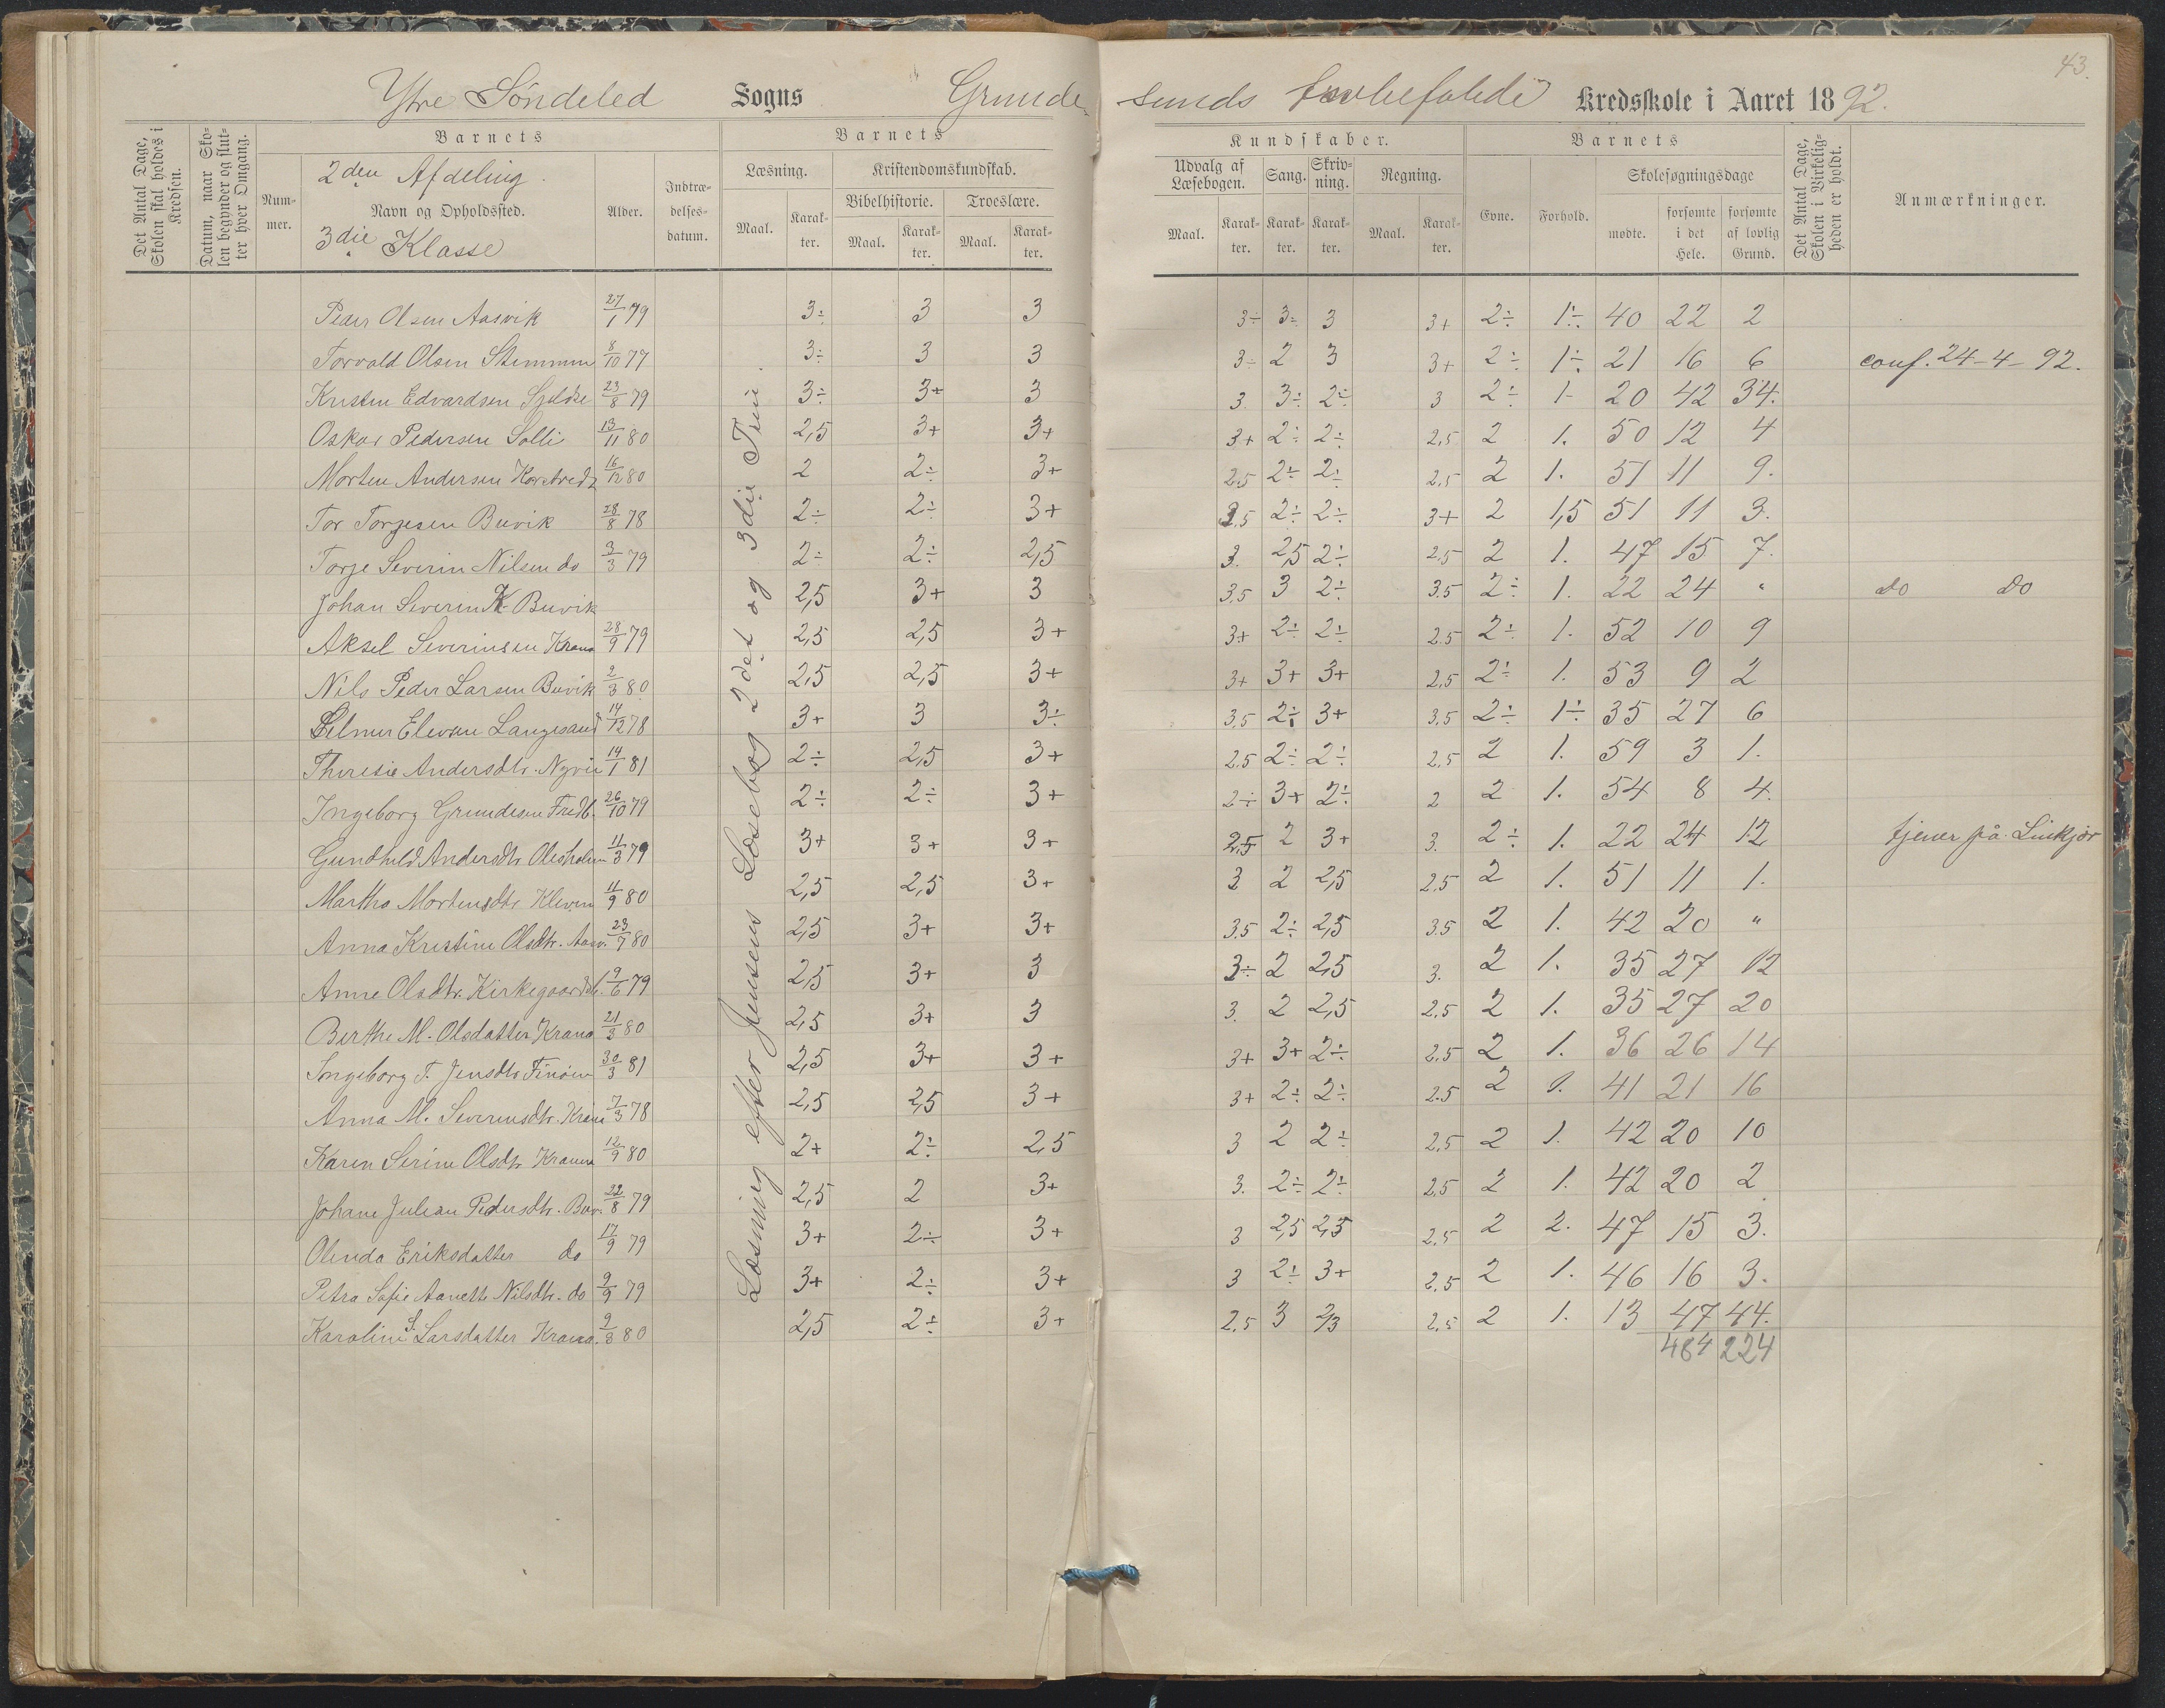 43.
Ytre Söndeled Sogns Grunde- sunds Kredsskole i Aaret 1892.
Det Antal Dage, Skolen skal holdes i Kredsen.
Datum, naar Skolen begynder og slutter hver Omgang.
Nummer.
Barnets
2den Afdeling.
Navn og Opholdssted.
3die Klasse
Alder.
Indtrædelsesdatum.
Barnets
Læsning.
Maal. Karakter.
Kristendomskundskab.
Bibelhistorie.
Maal. Karakter.
Troeslære.
Maal. Karakter.
Kundskaber.
Udvalg af Læsebogen.
Maal. Karakter.
Sang. Karakter.
Skrivning. Karakter.
Regning.
Maal. Karakter.
Barnets
Evne. Forhold.
Skolesøgningsdage
mødte. forsømte i det Hele. forsømte af lovlig Grund.
Det Antal Dage, Skolen i Virkeligheden er holdt.
Anmærkninger.
Læsning efter Jensens Læsebog 2det og 3die Trin.
Peder Olsen Aasvik 27/1 79 3÷ 3 3 3÷ 3÷ 3 3+ 2÷ 1÷ 40 22 2
Torvald Olsen Stemmen 8/10 77 3÷ 3 3 3÷ 2 3 3+ 2÷ 1÷ 21 16 6 conf. 24-4-92.
Kristen Edvardsen 23/8 79 3÷ 3+ 3 3 3÷ 2÷ 3 2÷ 1- 20 42 34.
Oskar Pedersen Solli 13/11 80 2,5 3+ 3+ 3+ 2÷ 2÷ 2,5 2 1. 50 12 4
Morten Andersen 16/12 80 2 2÷ 3+ 2,5 2÷ 2÷ 2,5 2 1. 51 11 9.
Tor Torjesen Buvik 28/8 78 2÷ 2÷ 3+ 3,5 2÷ 2÷ 3+ 2 1,5 51 11 3.
Torje Severin Nilsen do 3/3 79 2÷ 2÷ 2,5 3. 2,5 2÷ 2,5 2 1. 47 15 7.
Johan Severin K. Buvik 2,5 3+ 3 3,5 3 2÷ 3.5 2÷ 1. 22 24 " do do
Aksel Severinsen Krana 28/9 79 2,5 2,5 3+ 3+ 2÷ 2÷ 2.5 2÷ 1. 52 10 9
Nils Peder Larsen Buvik 2/3 80 2,5 2,5 3+ 3+ 3+ 3+ 2,5 2÷ 1. 53 9 2
Selmer Elevsen Langesand 14/12 78 3+ 3 3÷ 3,5 2÷ 3+ 3,5 2÷ 1÷ 35 27 6
Theresie Andersdtr. 14/1 81 2÷ 2,5 3+ 2.5 2÷ 2÷ 2,5 2 1. 59 3 1.
Ingeborg Grundesen Fredb. 26/10 79 2÷ 2÷ 3+ 2÷ 3+ 2÷ 2 2 1. 54 8 4.
Gundhild Andersdtr. Olesholm 11/3 79 3+ 3+ 3+ 2,5 2 3+ 3. 2÷ 1. 22 24 12 tjener på Linkjær
Martha Mortensdtr. Kleven 11/9 80 2,5 2,5 3+ 3 2 2,5 2.5 2 1. 51 11 1.
Anna Kristine Olsdtr. Aasv. 23/7 80 2,5 3+ 3+ 3.5 2÷ 2,5 3.5 2 1. 42 20 "
Anne Olsdtr. Kirkegaardsb. 9/6 79 2,5 3+ 3 3÷ 2 2,5 3. 2 1. 35 27 12
Berthe M. Olsdatter Krana 21/3 80 2,5 3+ 3 3. 2 2,5 2.5 2 1. 35 27 20
Ingeborg T. Jensdtr. Finöen 30/3 81 2,5 3+ 3+ 3+ 3+ 2÷ 2.5 2 1. 36 26 14
Anna M. Severinsdtr. Krana 7/3 78 2,5 2,5 3+ 3+ 2÷ 2÷ 2.5 2 1. 41 21 16
Karen Serine Olsdtr. Krana 12/9 80 2+ 2÷ 2,5 3 2 2÷ 2,5 2 1. 42 20 10
Johane Juliane Pedersdtr. Buv. 22/8 79 2,5 2 3+ 3. 2÷ 2÷ 2,5 2 1. 42 20 2
Olenda Eriksdatter do 17/9 79 3+ 2÷ 3+ 3 2,5 2,5 2,5 2 2. 47 15 3.
Petra Sofie Aanette Nilsdtr. do 9/9 79 3+ 2÷ 3+ 3 2÷ 3+ 2.5 2 1. 46 16 3.
Karoline S. Larsdatter Krana. 9/8 80 2,5 2÷ 3+ 2.5 3 2/3 2,5 2 1. 13 47 44.
484 224